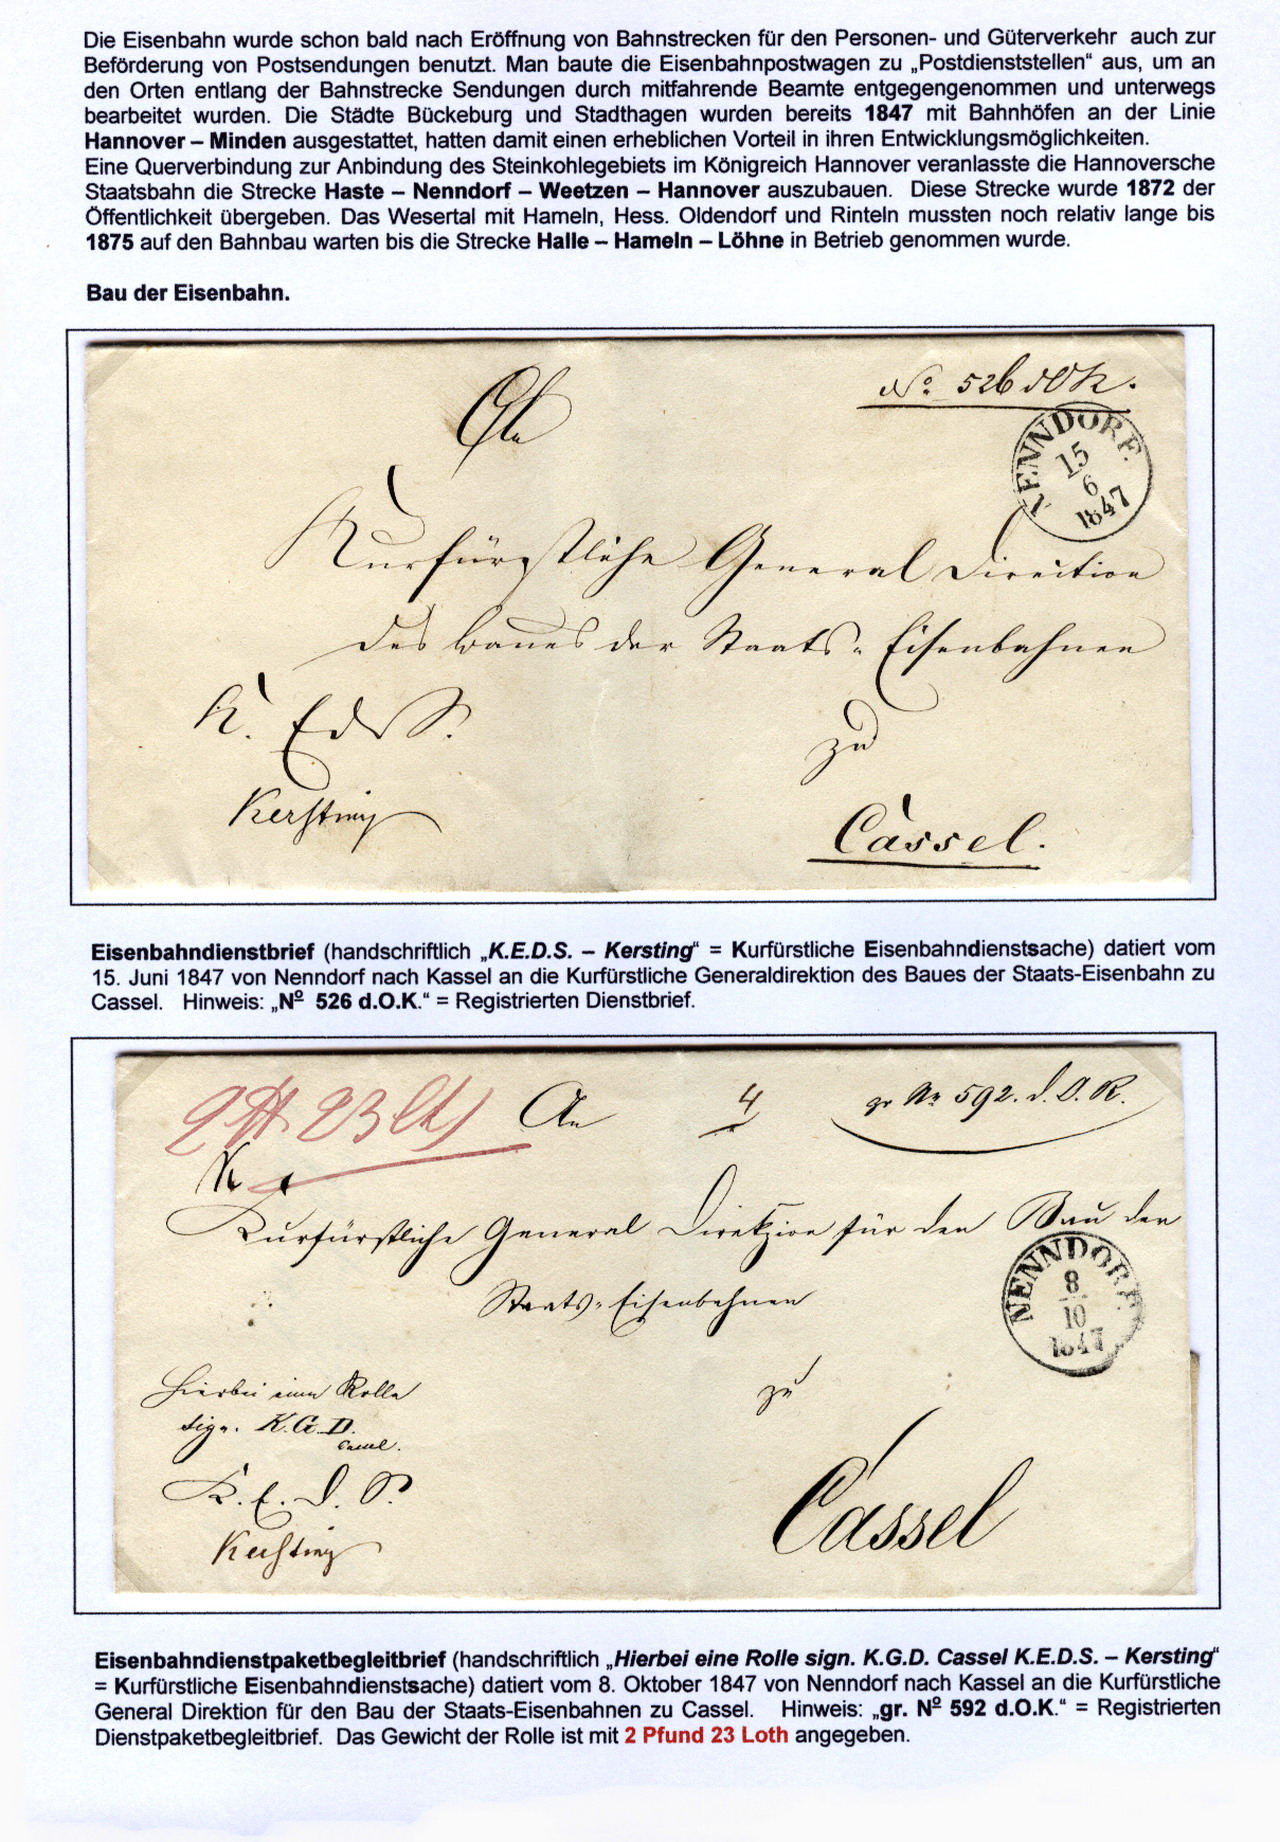 Die Eisenbahn wurde schon bald nach Eröffnung von Bahnstrecken für den Personen- und Güterverkehr auch zur
Beförderung von Postsendungen benutzt. Man baute die Eisenbahnpostwagen zu „Postdienststellen“ aus, um an
den Orten entlang der Bahnstrecke Sendungen durch mitfahrende Beamte entgegengenommen und unterwegs
bearbeitet wurden. Die Städte Bückeburg und Stadthagen wurden bereits 1847 mit Bahnhöfen an der Linie
Hannover – Minden ausgestattet, hatten damit einen erheblichen Vorteil in ihren Entwicklungsmöglichkeiten.
Eine Querverbindung zur Anbindung des Steinkohlegebiets im Königreich Hannover veranlasste die Hannoversche
Staatsbahn die Strecke Haste – Nenndorf – Weetzen – Hannover auszubauen. Diese Strecke wurde 1872 der
Öffentlichkeit übergeben. Das Wesertal mit Hameln, Hess. Oldendorf und Rinteln mussten noch relativ lange bis
1875 auf den Bahnbau warten bis die Strecke Halle – Hameln – Löhne in Betrieb genommen wurde.
Bau der Eisenbahn.
No 526 d O K.
An
NENNDORF.
15
6
1847
Kurfürstliche General Direction
des Baues der Staats-Eisenbahnen
K. E d S.
zu
Kersting
Cassel.
Eisenbahndienstbrief (handschriftlich „K.E.D.S. – Kersting“ = Kurfürstliche Eisenbahndienstsache) datiert vom
15. Juni 1847 von Nenndorf nach Kassel an die Kurfürstliche Generaldirektion des Baues der Staats-Eisenbahn zu
Cassel. Hinweis: „Nº 526 d.O.K.“ = Registrierten Dienstbrief.
2 ℔ 23 Lth An 4 gr No 592. d. O. K.
Kurfürstliche General Direkzion für den Bau der
Staats-Eisenbahnen
NENNDORF.
8
10
1847
Hierbei eine Rolle
sign. K.G.D.
Cassel.
zu
K. E. D. S.
Kersting
Cassel
Eisenbahndienstpaketbegleitbrief (handschriftlich „Hierbei eine Rolle sign. K.G.D. Cassel K.E.D.S. – Kersting“
= Kurfürstliche Eisenbahndienstsache) datiert vom 8. Oktober 1847 von Nenndorf nach Kassel an die Kurfürstliche
General Direktion für den Bau der Staats-Eisenbahnen zu Cassel. Hinweis: „gr. Nº 592 d.O.K.“ = Registrierten
Dienstpaketbegleitbrief. Das Gewicht der Rolle ist mit 2 Pfund 23 Loth angegeben.